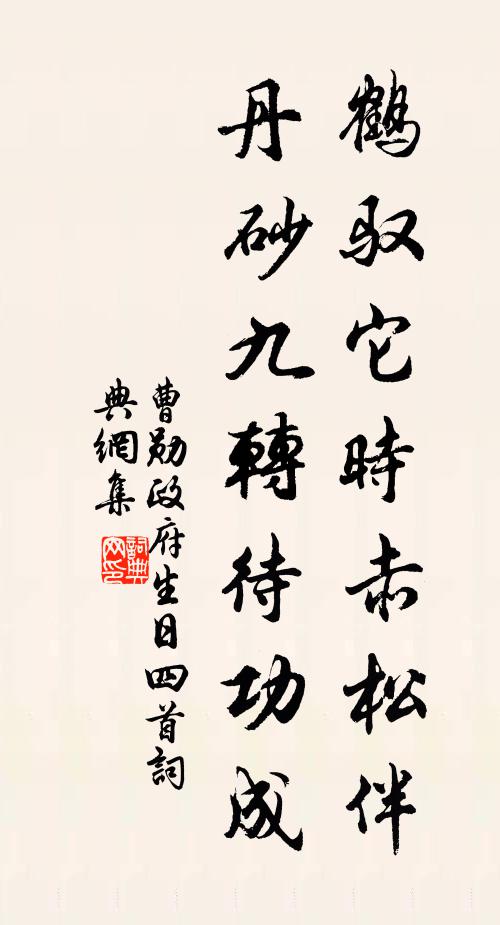 鶴馭它時赤松伴
丹砂九轉待功成
曹勛政府生日四首詞
典網集
詞典
网印